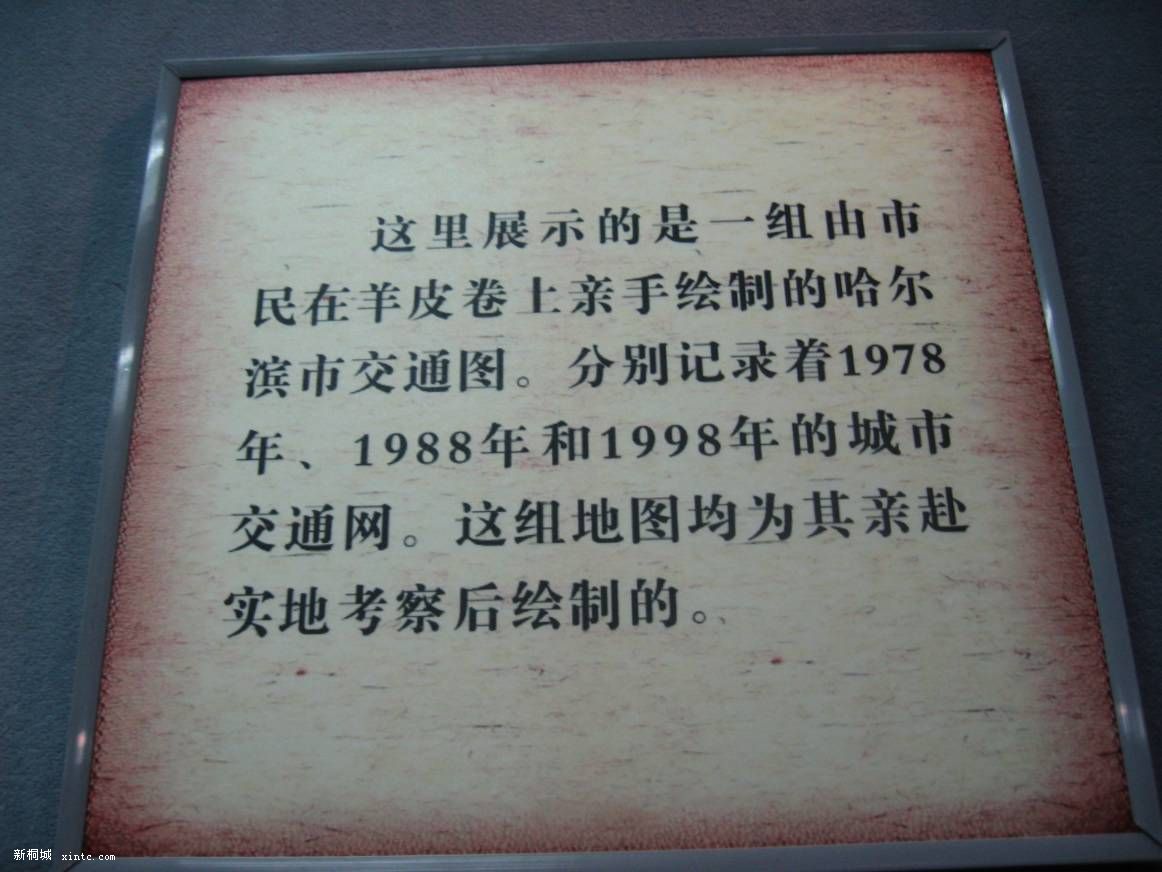 这里展示的是一组由市
民在羊皮卷上亲手绘制的哈尔
滨市交通图。分别记录着1978
年、1988年和1998年的城市
交通网。这组地图均为其亲赴
实地考察后绘制的。
新桐城 xintc.com